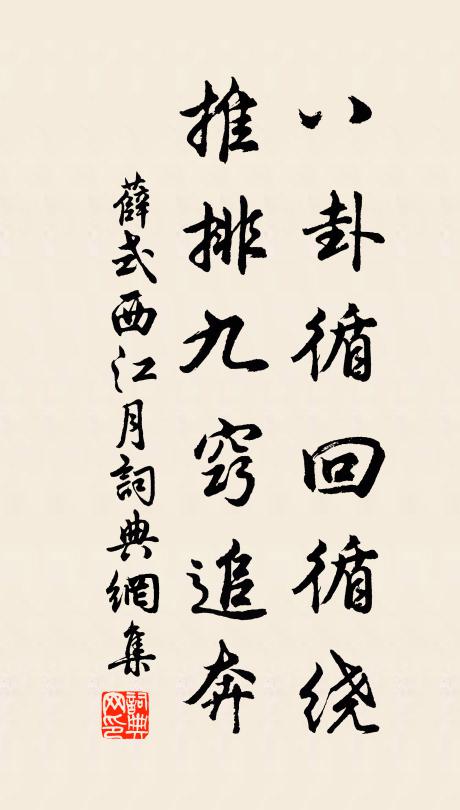 八卦循回循绕
推排九窍追奔
薛式西江月詞典網集
詞典網印